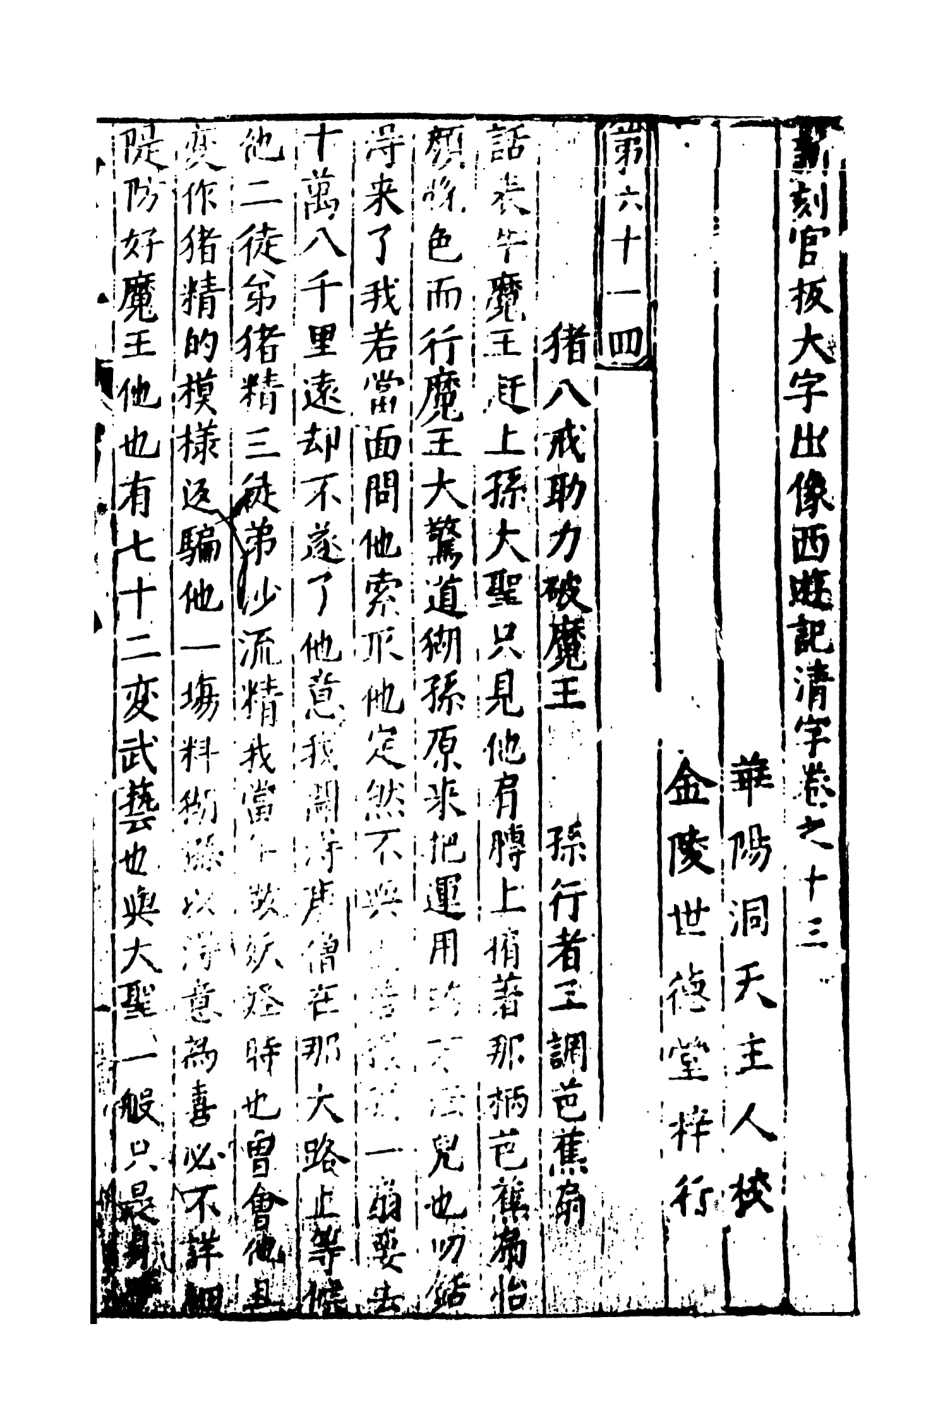 新刻官板大字出像西遊記清字卷之十三
華陽洞天主人校
金陵世德堂梓行
第六十一囬
猪八戒助力破魔王 孫行者三調芭蕉扇
話表牛魔王赶上孫大聖只見他肩膊上掮著那柄芭蕉扇怡
顏悅色而行魔王大驚道猢孫原來把運用的方法兒也叨餂
得来了我若當面問他索取他定然不與一扇要去
十萬八千里遠却不遂了他意我聞得唐僧在那大路上等候
他二徒弟猪精三徒弟沙流精我當年做妖怪時也曾會他且
変作猪精的模樣返騙他一塲料猢猻以得意為喜必不詳細
隄防好魔王他也有七十二変武藝也與大聖一般只是身